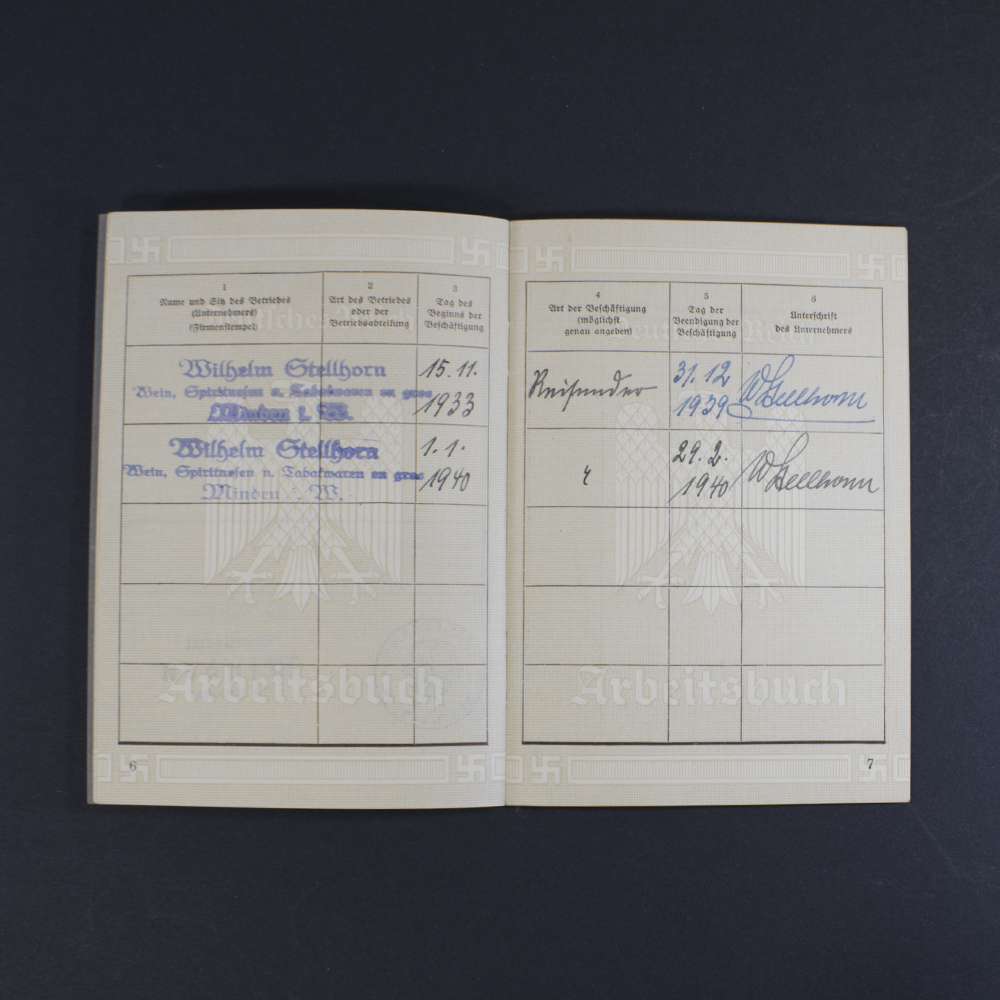 1
Name und Sitz des Betriebes
(Unternehmers)
(Firmenstempel)
2
Art des Betriebes
oder der
Betriebsabteilung
3
Tag des
Beginns der
Beschäftigung
Wilhelm Stellhorn
Wein, Spirituosen u. Tabakwaren en gros
Minden i. W.
15. 11.
1933
Wilhelm Stellhorn
Wein, Spirituosen u. Tabakwaren en gros
Minden i. W.
1. 1.
1940
Arbeitsbuch
6
4
Art der Beschäftigung
(möglichst
genau angeben)
5
Tag der
Beendigung der
Beschäftigung
6
Unterschrift
des Unternehmers
Deutsches Reich
Reisender
31. 12
1939
W Stellhorn
"
29. 2.
1940
W Stellhorn
Arbeitsbuch
7